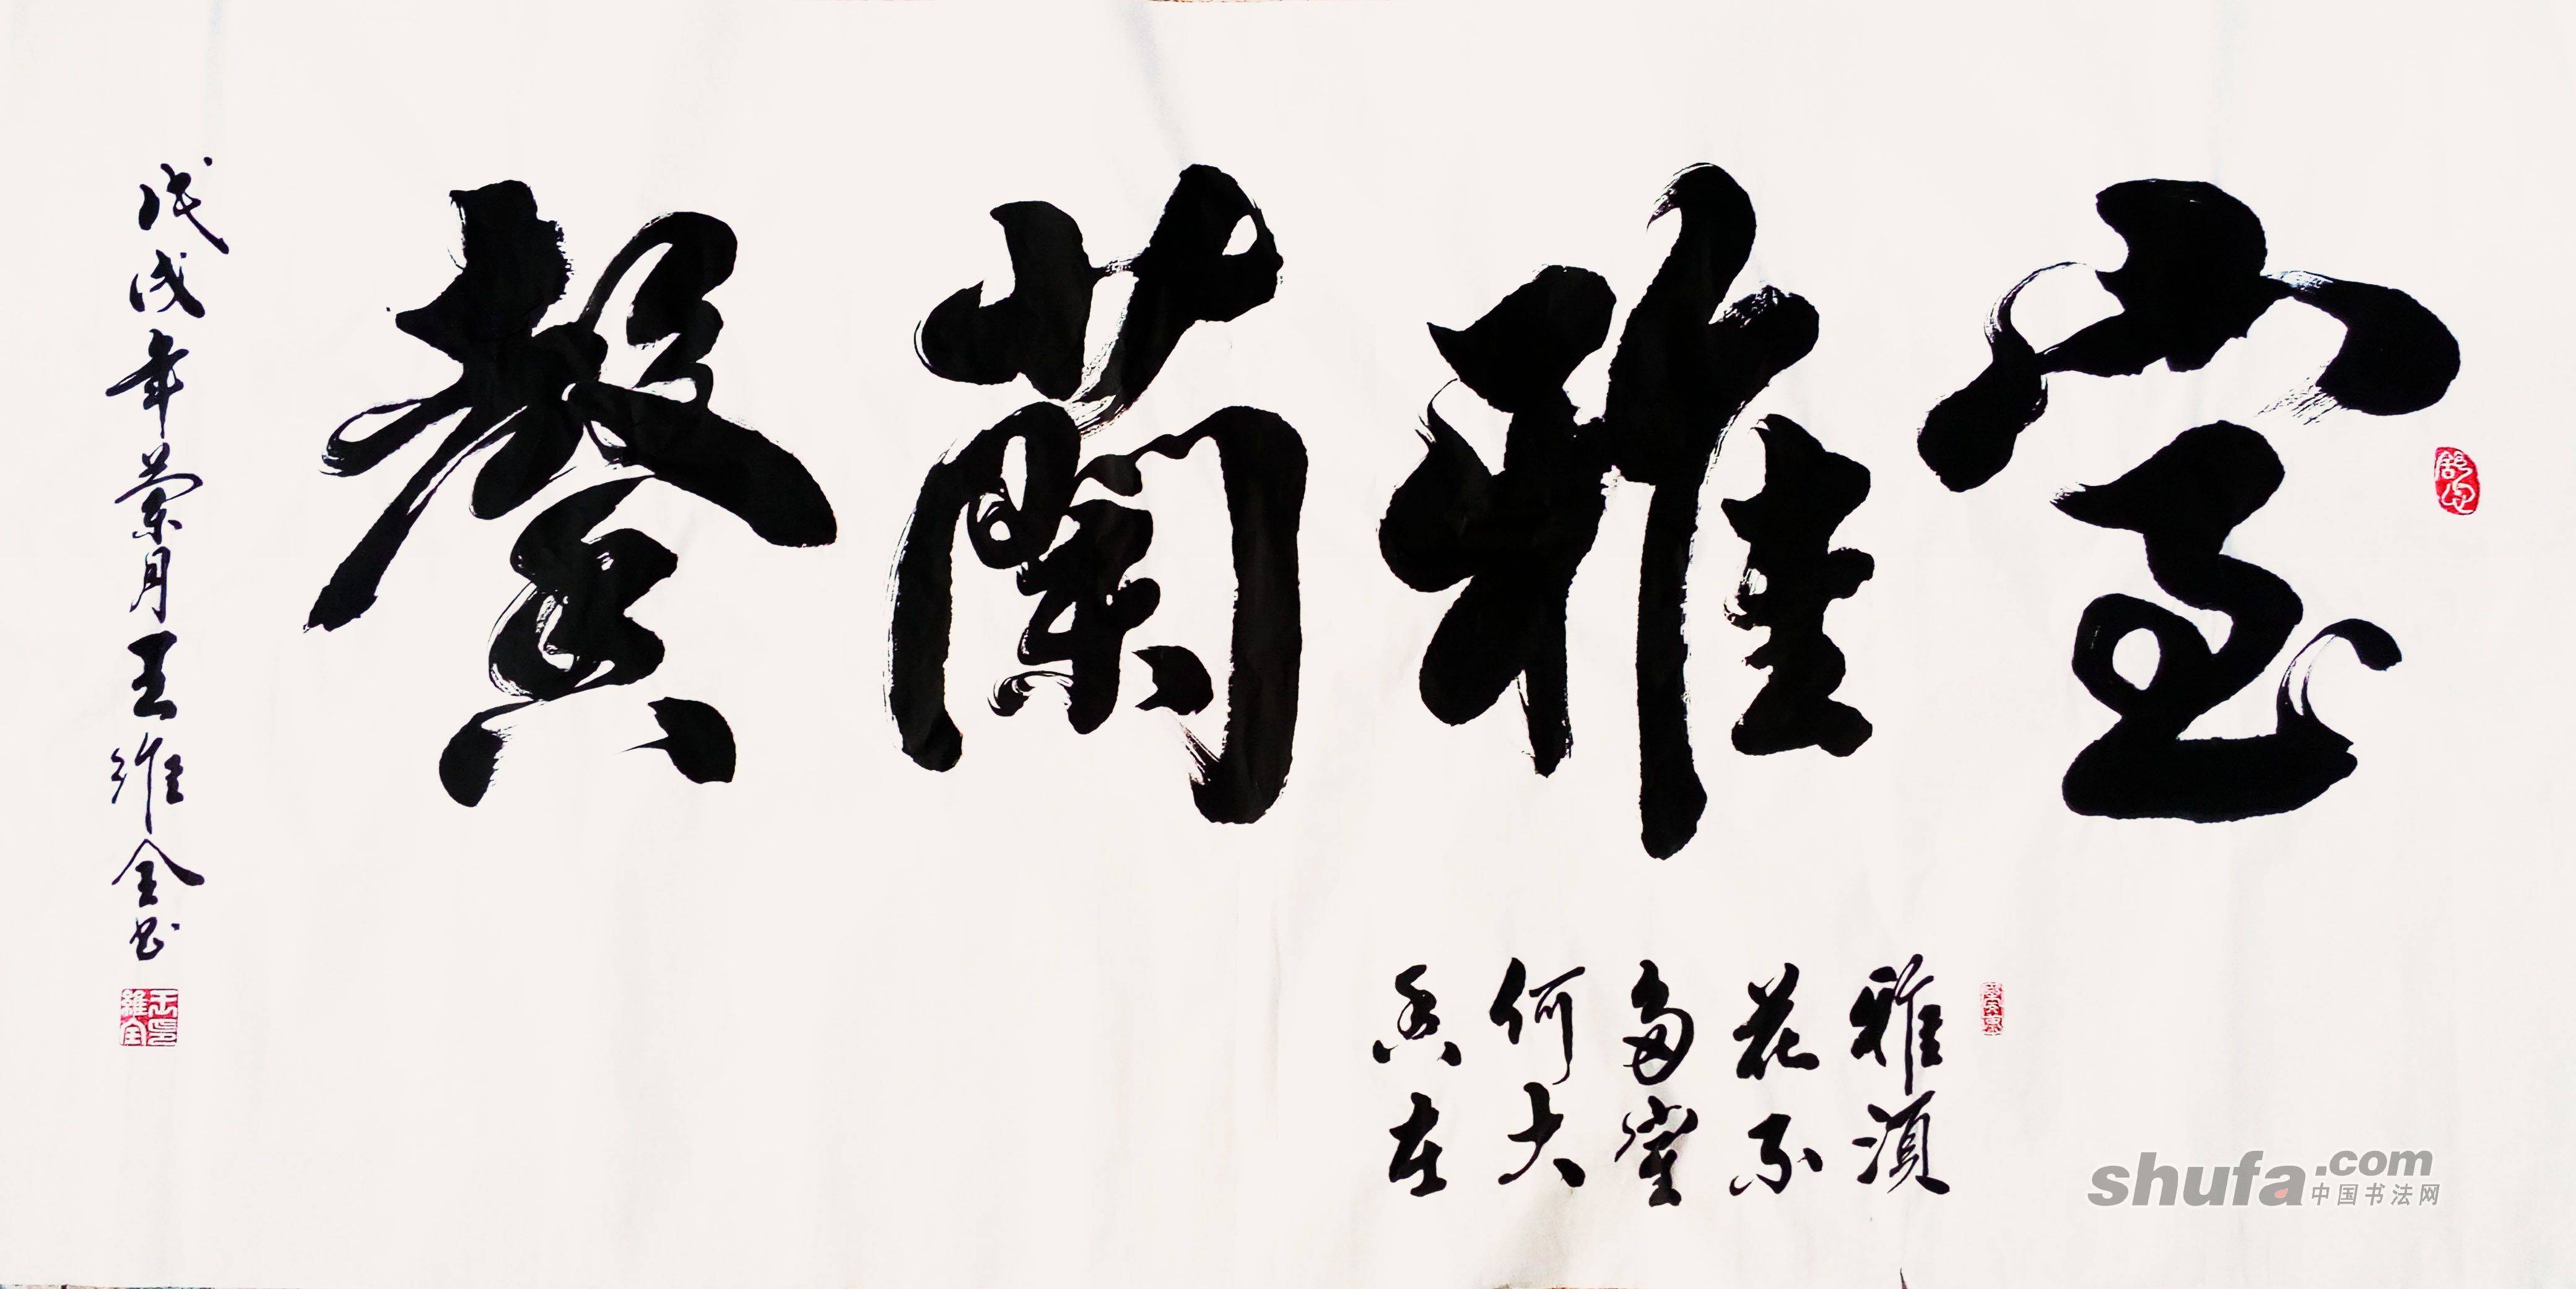 室雅蘭馨
雅須
花不
多室
何大
香在
戊戌年蘭月王維金書
王印維金
shufa.com
中国书法网